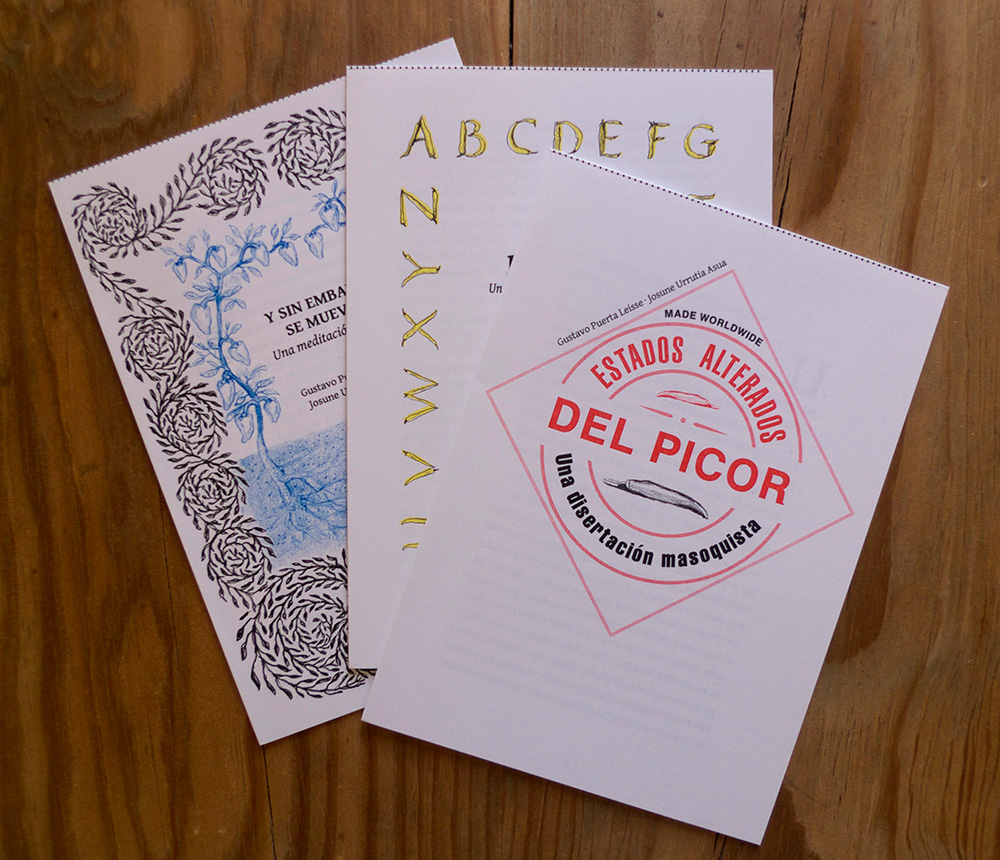 Y SIN EMBA
SE MUEV
Una meditació
Gustavo Pu
Josune U
A B C D E F G
Z
Y
X
W
V
Un
Gustavo Puerta Leisse · Josune Urrutia Asua
MADE WORLDWIDE
ESTADOS ALTERADOS
DEL PICOR
Una disertación masoquista